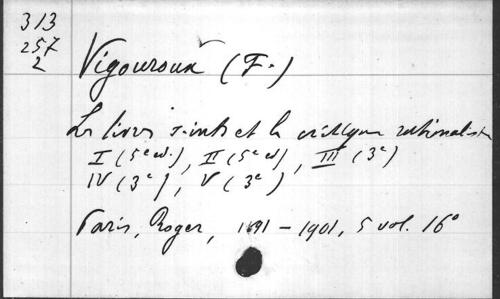 313
257
2
Vigouroux (F.)
Les livres saints et la critique rationaliste
I (5e ed.), II (5e ed), III (3e)
IV (3e), V (3e)
Paris, Roger, 1891 – 1901, 5 vol. 16°